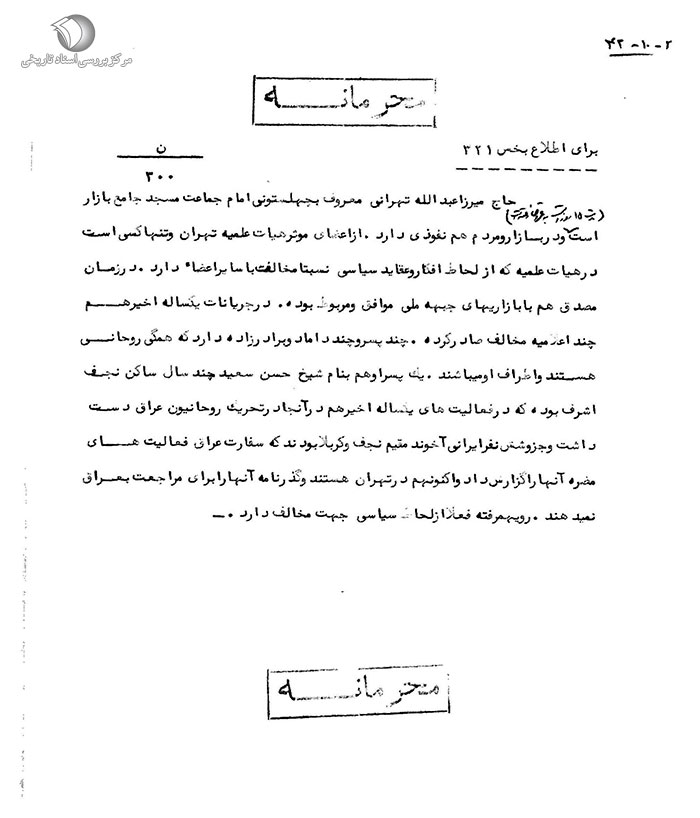 مرکز بررسی اسناد تاریخی
۴۲-۱۰-۲
محرمانه
برای اطلاع بخش ۳۲۱
ن
۳۰۰
حاج میرزا عبدالله تهرانی معروف بچهلستونی امام جماعت مسجد جامع بازار
است و در بازار و مردم هم نفوذی دارد . از اعضای موثر هیات علمیه تهران و تنها کسی است
در هیات علمیه که از لحاظ افکار و عقاید سیاسی نسبتا مخالفت با سایر اعضاء دارد . در زمان
مصدق هم با بازاریهای جبهه ملی موافق و مربوط بوده . در جریانات یکساله اخیر هم
چند اعلامیه مخالف صادر کرده . چند پسر و چند داماد و برادرزاده دارد که همگی روحانی
هستند و اطراف او میباشند . یک پسر او هم بنام شیخ حسن سعید چند سال ساکن نجف
اشرف بوده که در فعالیت های یکساله اخیر هم در آنجا در تحریک روحانیون عراق دست
داشت و جزو شش نفر ایرانی آخوند مقیم نجف و کربلا بودند که سفارت عراق فعالیت های
مضره آنها را گزارش داد و اکنون هم در تهران هستند و گذرنامه آنها را برای مراجعت بعراق
نمیدهند . رویهمرفته فعلا از لحاظ سیاسی جبهت مخالف دارد .ــ
محرمانه